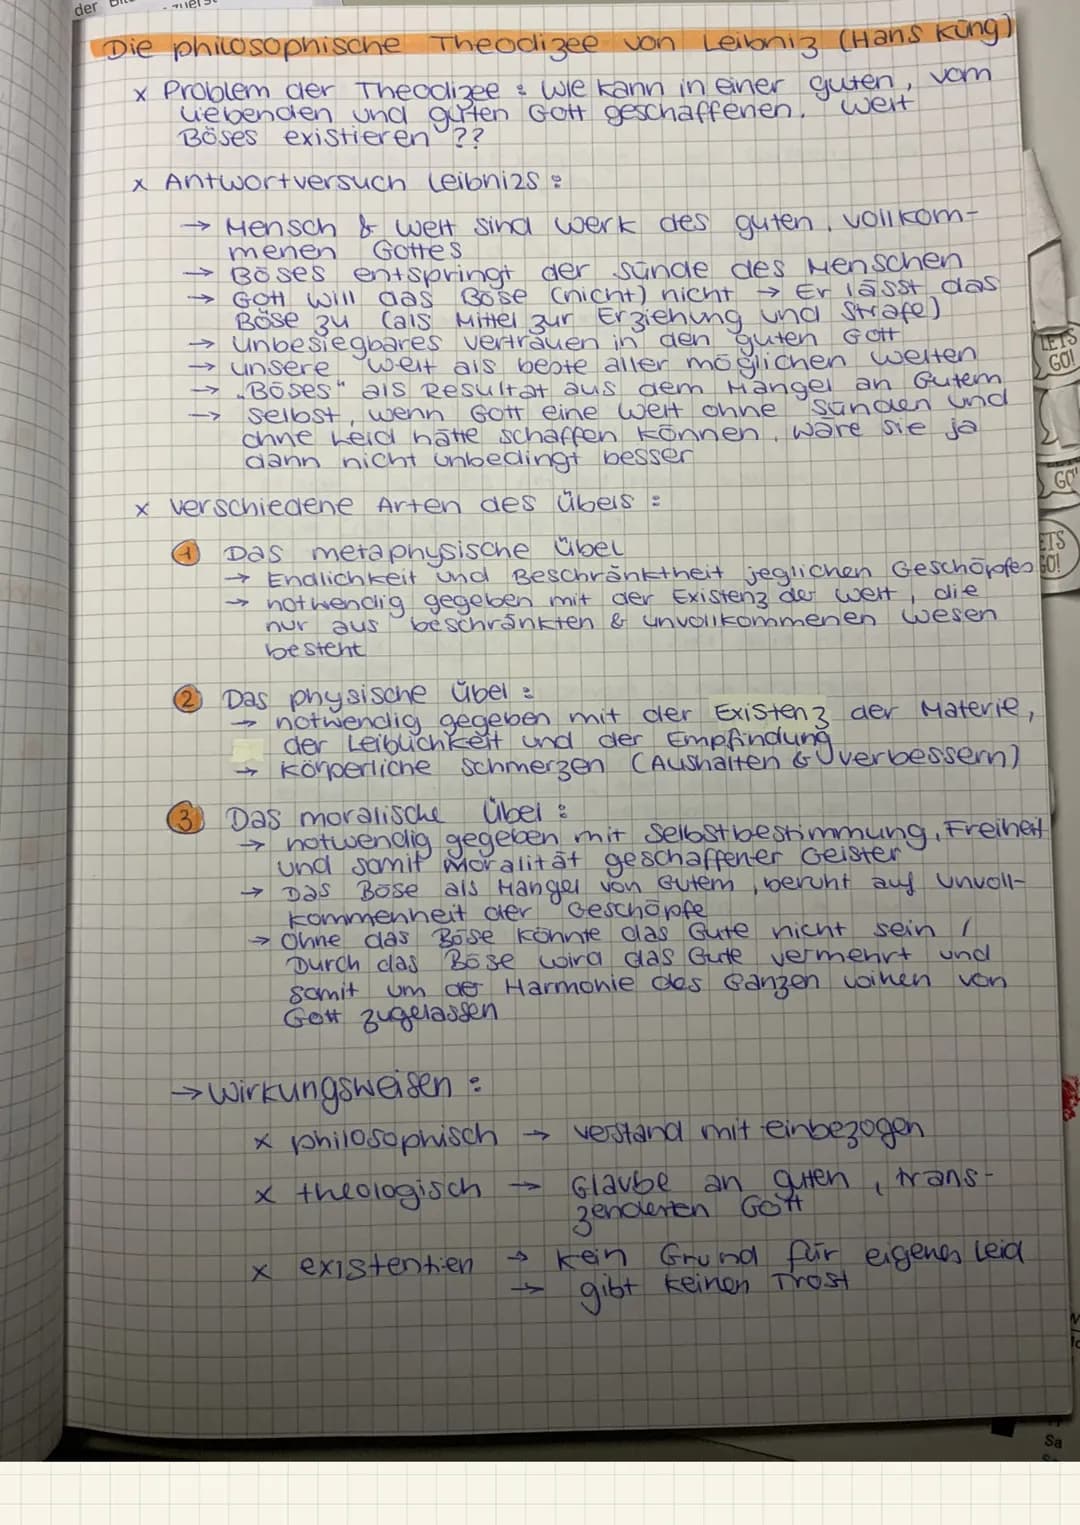 der
Die philosophische Theodizee von Leibniz (Hans Küng)
x Problem der Theodizee : Wie kann in einer guten, vom
liebenden und guten Gott geschaffenen, Welt
Böses existieren ??
x Antwortversuch Leibnizs :
→ Mensch & Welt sind Werk des guten, vollkom-
menen Gottes
→ Böses entspringt der Sünde des Menschen
→ Gott will das Böse (nicht) nicht → Er lässt das
Böse zu (als Mittel zur Erziehung und Strafe)
→ unbesiegbares Vertrauen in den guten Gott
→ unsere Welt als beste aller möglichen Welten
→ „Böses" als Resultat aus dem Mangel an Gutem
→ selbst, wenn Gott eine Welt ohne Sünden und
ohne Leid hätte schaffen können, wäre sie ja
dann nicht unbedingt besser
x verschiedene Arten des Übels :
1 Das metaphysische Übel
→ Endlichkeit und Beschränktheit jeglichen Geschöpfes
→ notwendig gegeben mit der Existenz der Welt, die
nur aus beschränkten & unvollkommenen Wesen
besteht
2 Das physische Übel :
→ notwendig gegeben mit der Existenz der Materie,
der Leiblichkeit und der Empfindung
→ Körperliche Schmerzen (Aushalten & verbessern)
3 Das moralische Übel :
→ notwendig gegeben mit Selbstbestimmung, Freiheit
und somit Moralität geschaffener Geister
→ Das Böse als Mangel von Gutem, beruht auf Unvoll-
kommenheit der Geschöpfe
→ Ohne das Böse könnte das Gute nicht sein /
Durch das Böse wird das Gute vermehrt und
somit um der Harmonie des Ganzen willen von
Gott zugelassen
→ Wirkungsweisen :
x philosophisch → Verstand mit einbezogen
x theologisch → Glaube an guten, trans-
zendenten Gott
x existentiell → Kein Grund für eigenes Leid
→ gibt keinen Trost
LETS
GO!
GO!
ETS
GO!
Sa